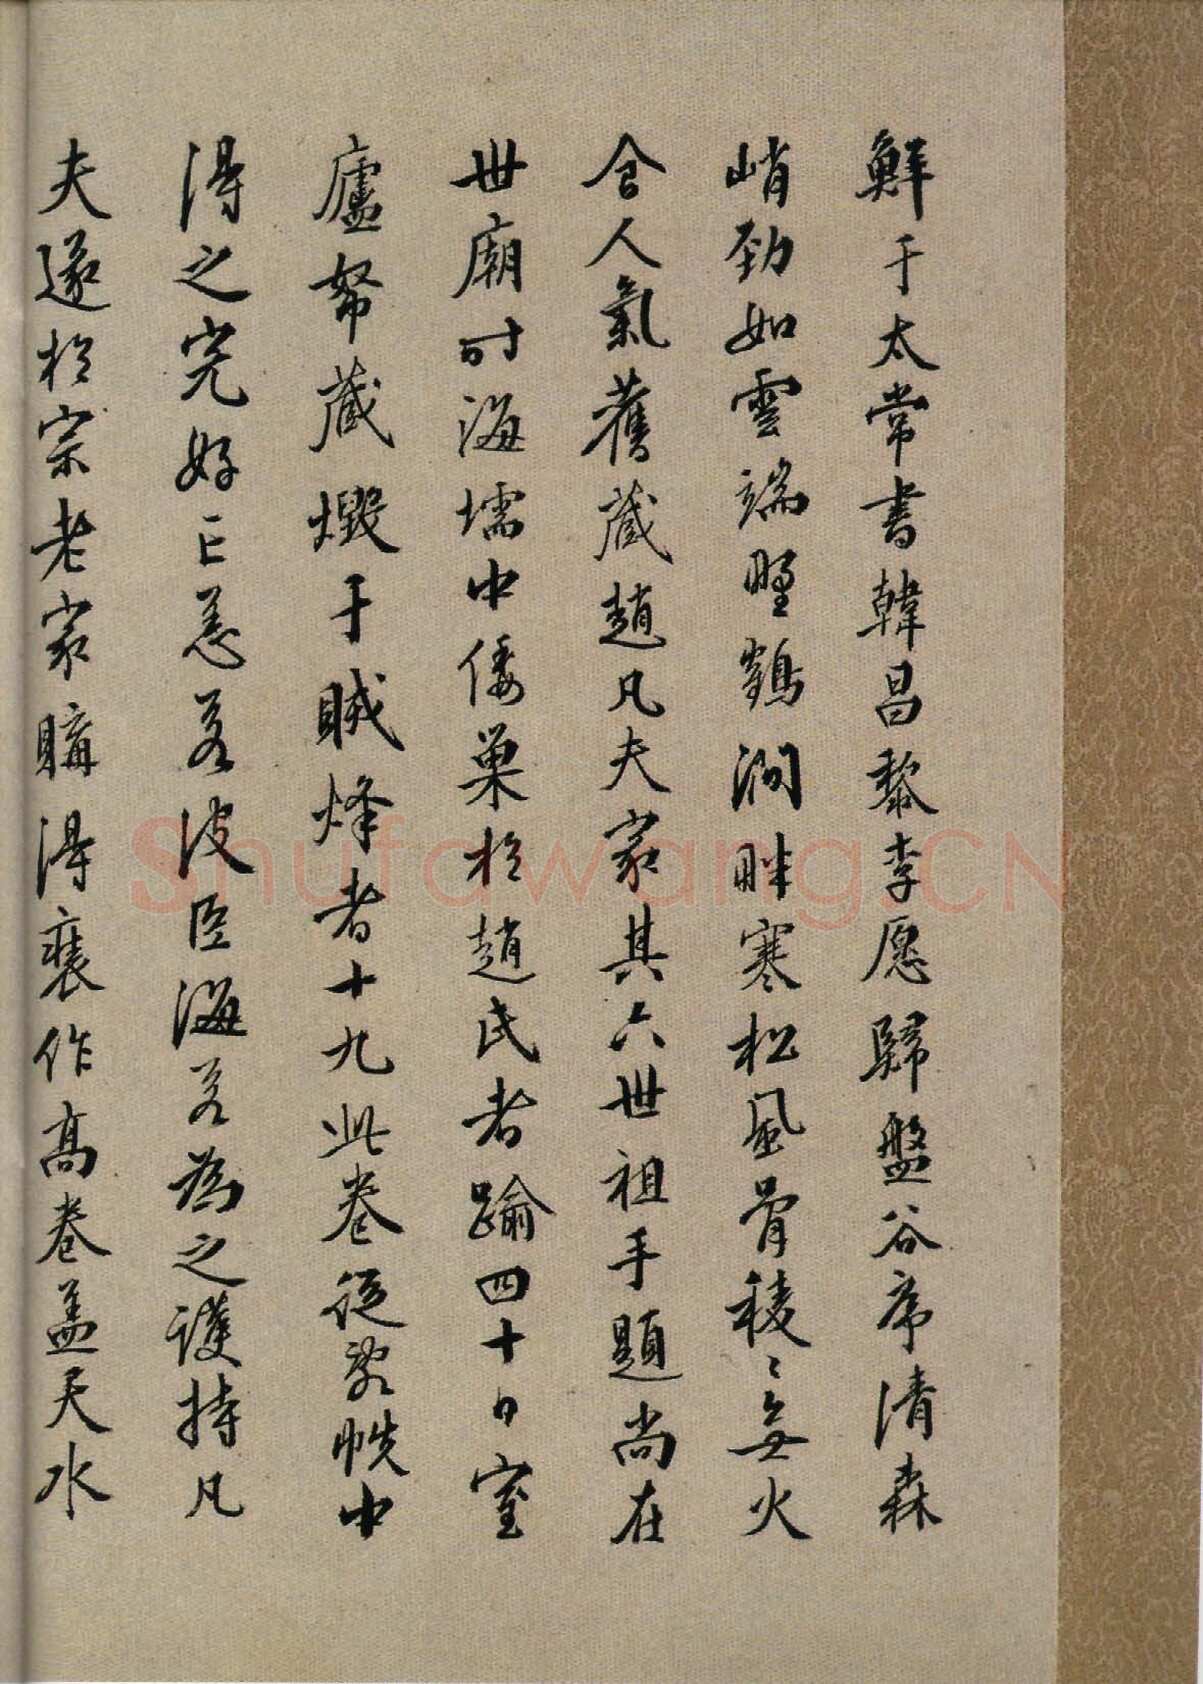 鮮于太常書韓昌黎李愿歸盤谷序清森
峭勁如雲端野鶴澗畔寒松風骨稜〻無火
食人氣舊藏趙凡夫家其六世祖手題尚在
世廟時海壖中倭巢於趙氏者踰四十日室
廬帑藏燬于賊烽者十九此卷從敗帙中
得之完好亡恙若波臣海若為之護持凡
夫遂於宗老家購得裝作高卷盖天水
Shufawang.CN